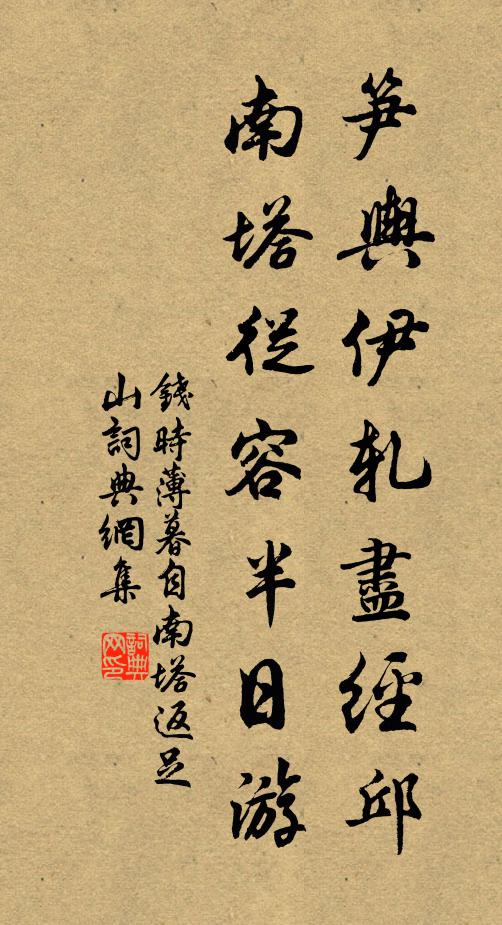 笋輿伊軋盡經邱
南塔從容半日游
錢時薄暮自南塔返足
山詞典網集
詞典网印